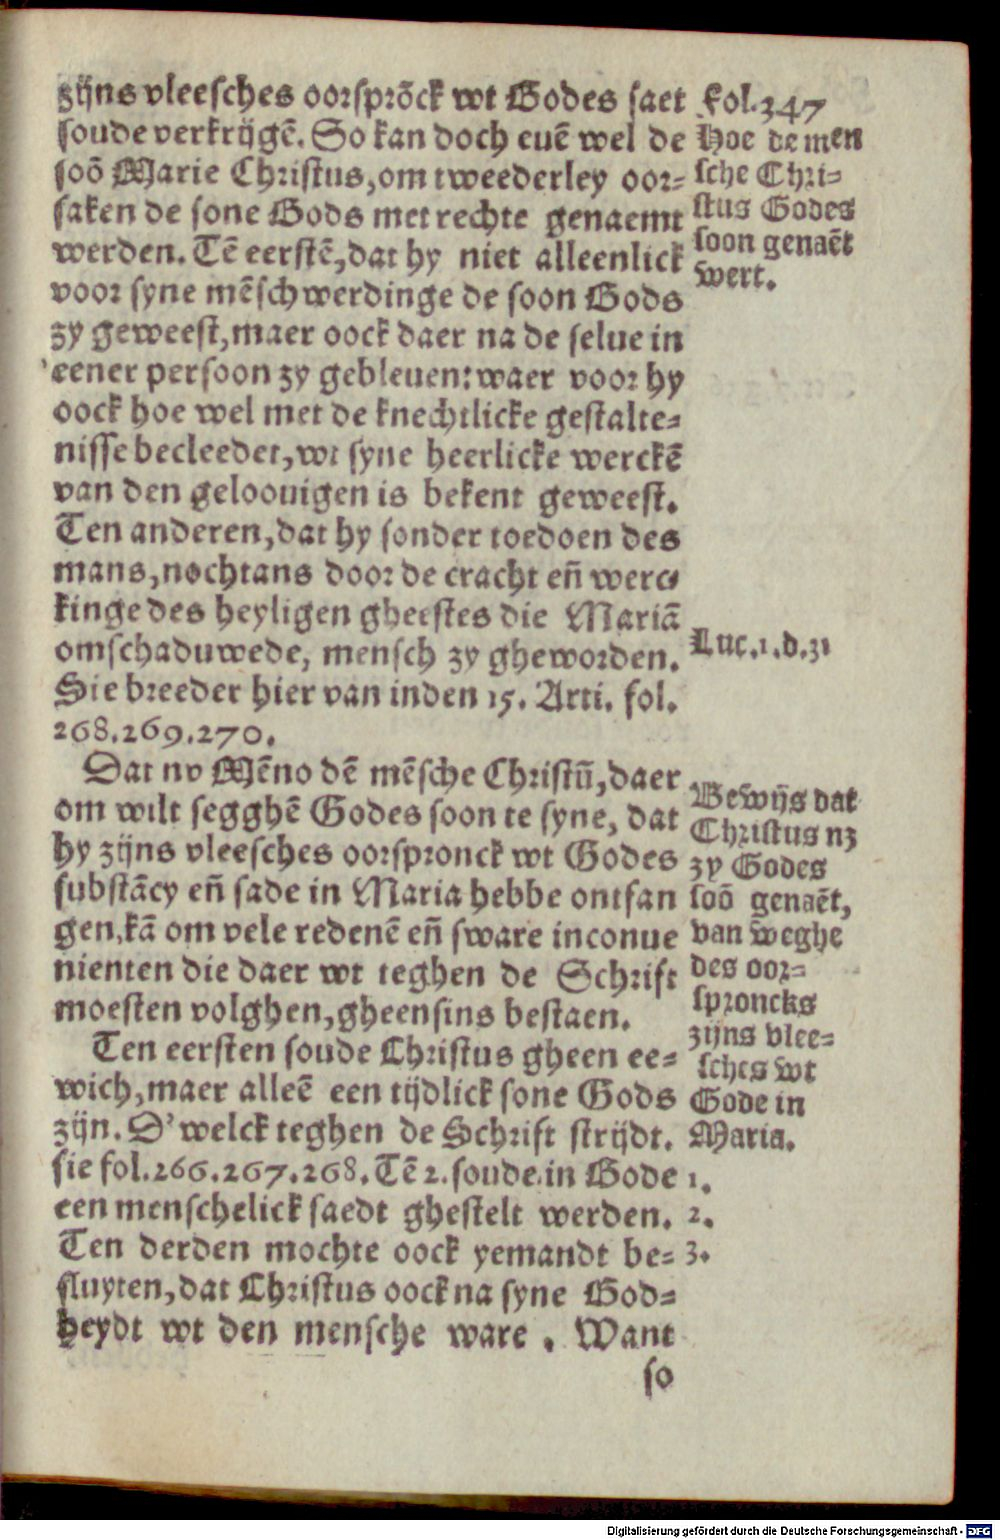 zijns vleesches oorsprõck wt Godes saet
soude verkrijgẽ. So kan doch euẽ wel de
soõ Marie Christus, om tweederley oor=
saken de sone Gods met rechte genaemt
werden. Tẽ eerstẽ, dat hy niet alleenlick
voor syne mẽschwerdinge de soon Gods
zy geweest, maer oock daer na de selue in
eener persoon zy gebleuen: waer voor hy
oock hoe wel met de knechtlicke gestalte=
nisse becleedet, wt syne heerlicke werckẽ
van den gelooui­gen is bekent geweest.
Ten anderen, dat hy sonder toedoen des
mans, nochtans door de cracht eñ werc=
kinge des heyligen gheestes die Mariã
omschaduwede, mensch zy gheworden.
Sie breeder hier van inden 15. Arti. fol.
268.269.270.
Dat nv Mẽno dẽ mẽsche Christũ, daer
om wilt segghẽ Godes soon te syne, dat
hy zijns vleesches oorspronck wt Godes
substãcy eñ sade in Maria hebbe ontfan
gen, kã om vele redenẽ eñ sware inconue
nienten die daer wt teghen de Schrift
moesten volghen, gheensins bestaen.
Ten eersten soude Christus gheen ee=
wich, maer alleẽ een tijdlick sone Gods
zijn. D'welck teghen de Schrift strijdt.
sie fol.266.267.268. Tẽ 2. soude in Gode
een menschelick saedt ghestelt werden.
Ten derden mochte oock yemandt be=
sluyten, dat Christus oock na syne God=
heydt wt den mensche ware . Want
so
Fol.347
Hoe de men
sche Chri=
stus Godes
soon genaẽt
wert.
Luc.1.d.31
Bewijs dat
Christus nz
zy Godes
soõ genaẽt,
van w̃eghe
des oor=
sproncks
zijns vlee=
sches wt
Gode in
Maria.
1.
2.
3.
Digitalisierung gefördert durch die Deutsche Forschungsgemeinschaft - DFG